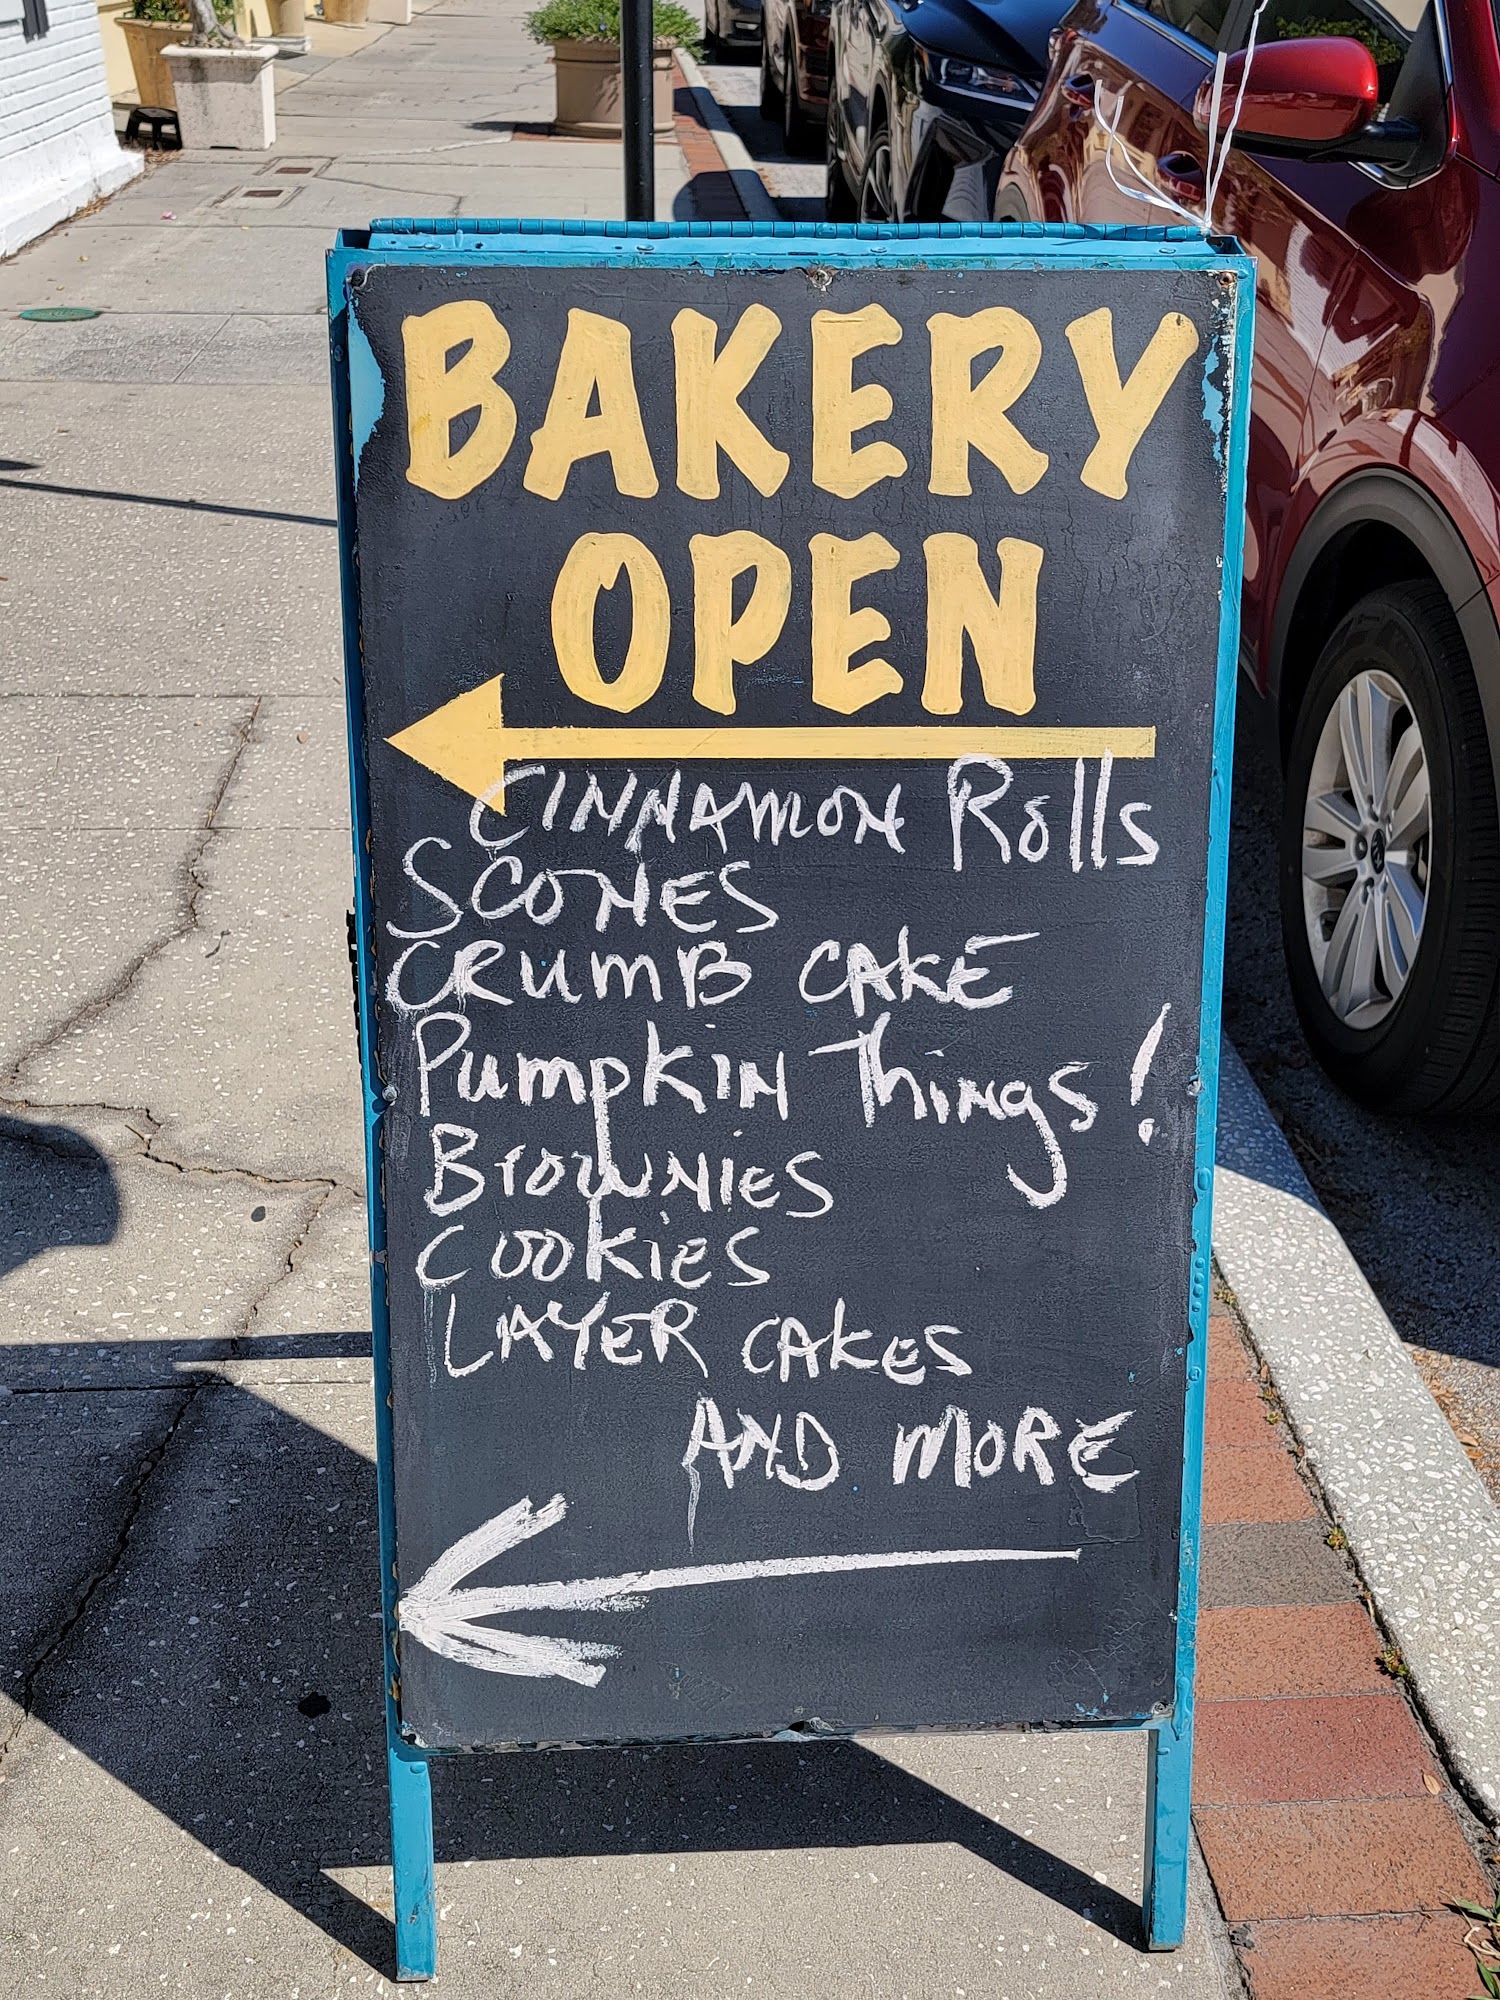 BAKERY
OPEN
CINNAMON Rolls
SCONES
CRUMB CAKE
PUMPKIN Things!
BROWNIES
COOKIES
LAYER CAKES
AND MORE